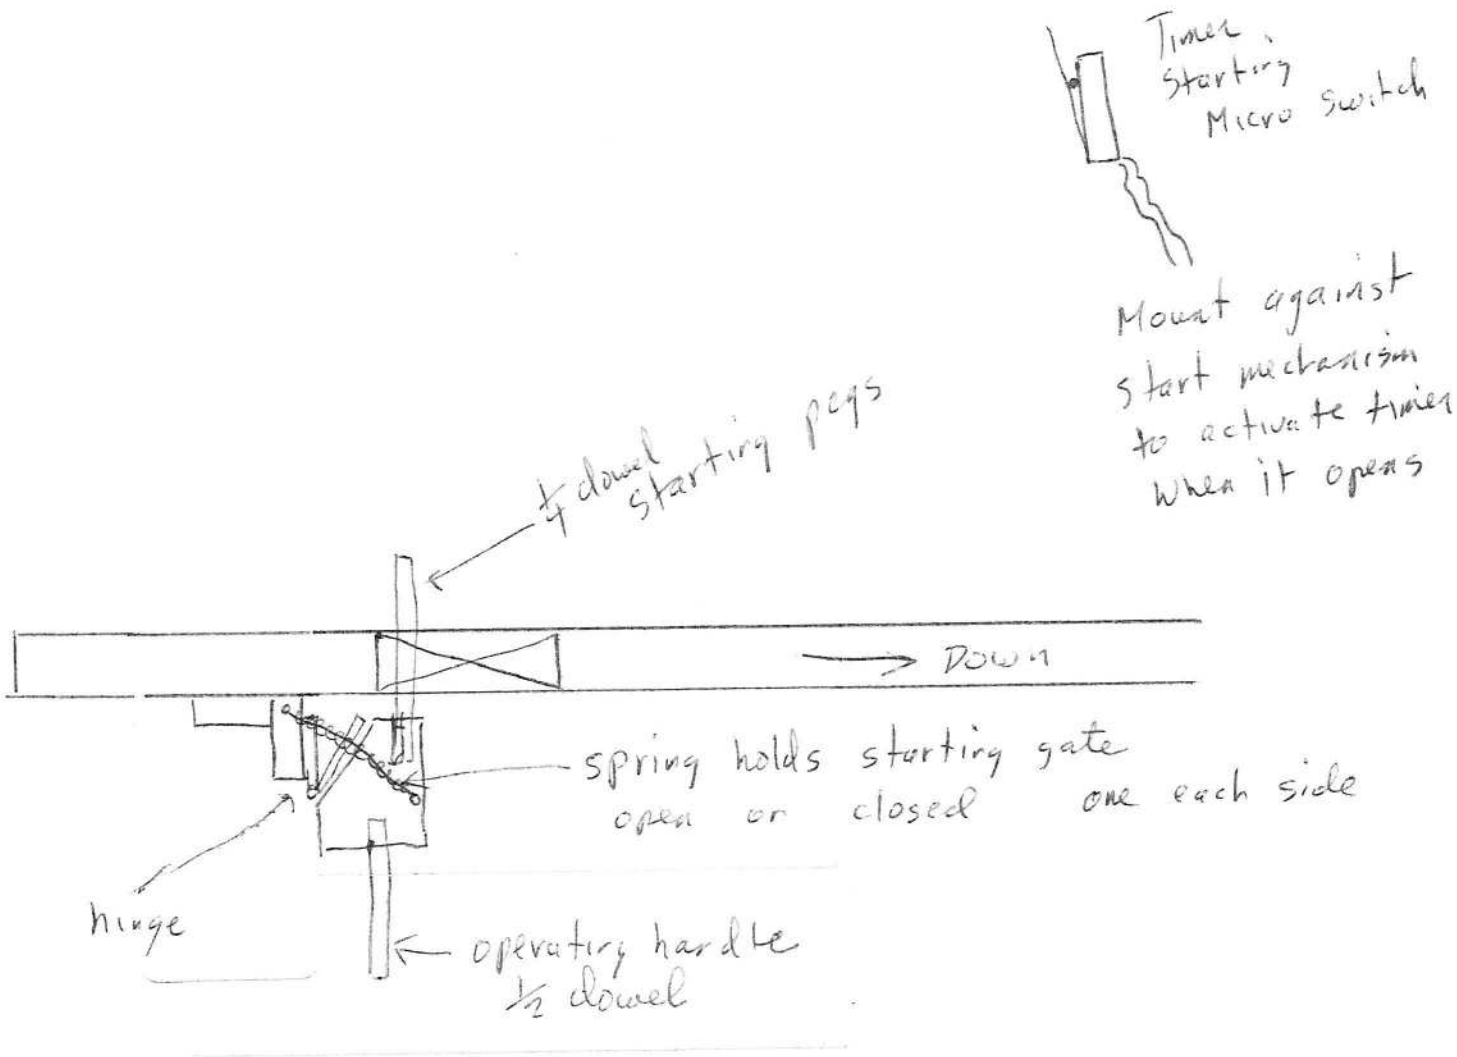 Timer
Starting
Micro Switch
Mount against
start mechanism
to activate timer
when it opens
1/4 dowel
starting pegs
Down
spring holds starting gate
open or closed one each side
hinge
operating handle
1/2 dowel